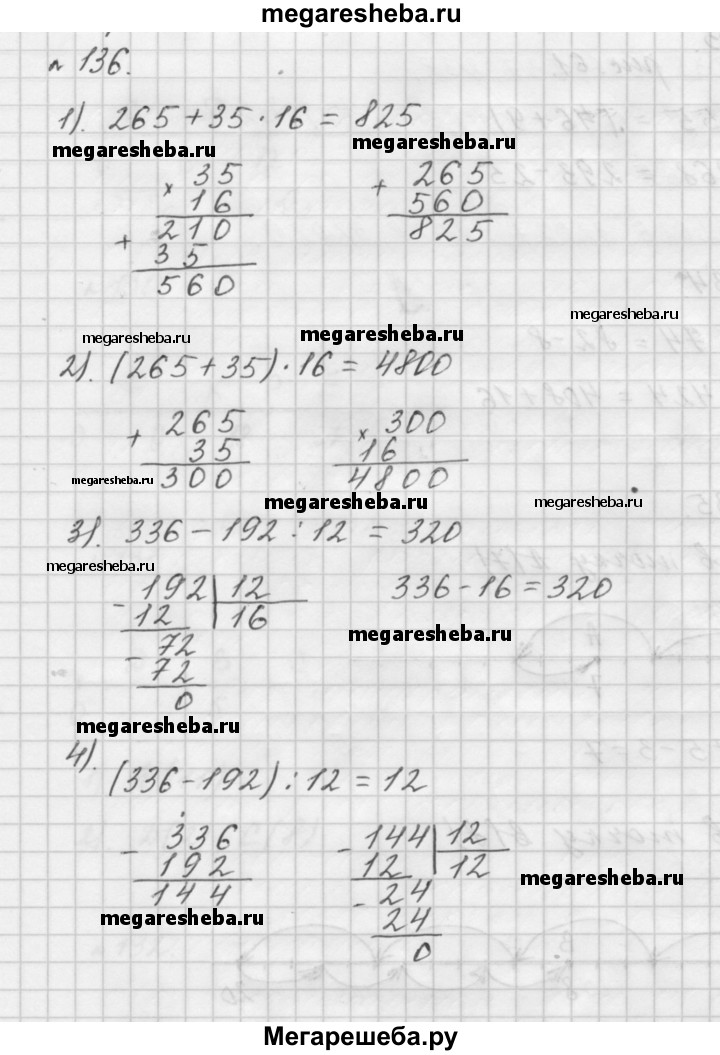 megaresheba.ru
№ 136.
1). 265 + 35 · 16 = 825
megaresheba.ru megaresheba.ru
× 35 + 265
16 560
+ 210 825
35
560
megaresheba.ru
megaresheba.ru megaresheba.ru
2). (265 + 35) · 16 = 4800
+ 265 × 300
35 16
300 4800
megaresheba.ru megaresheba.ru megaresheba.ru
3). 336 - 192 : 12 = 320
megaresheba.ru
- 192 | 12 336 - 16 = 320
12 16
- 72
72
0
megaresheba.ru
megaresheba.ru
4).
(336 - 192) : 12 = 12
- 336 - 144 | 12
192 12 12
144 - 24
24
0
megaresheba.ru
megaresheba.ru
Мегарешеба.ру